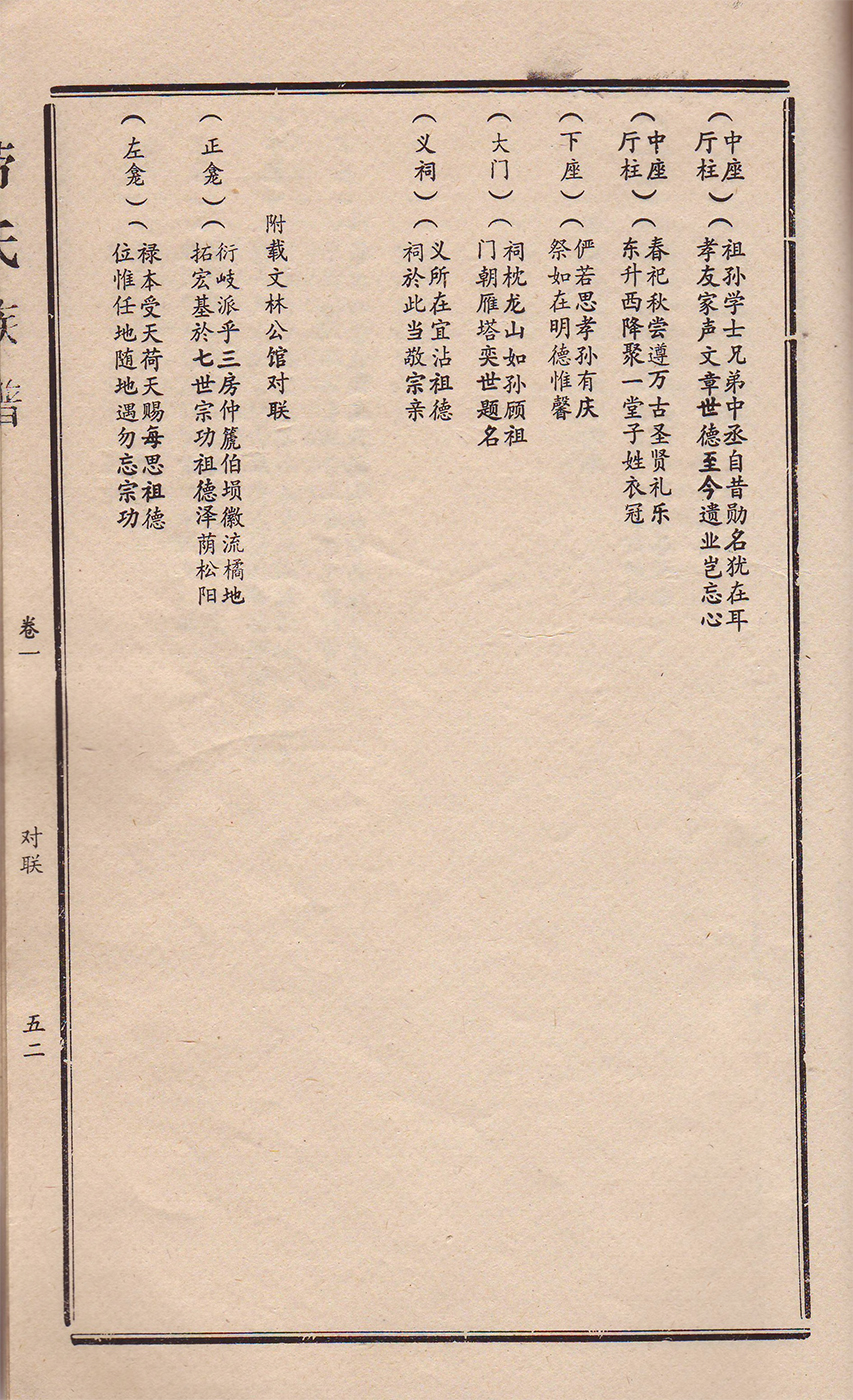 （中座厅柱）（祖孙学士兄弟中丞自昔勋名犹在耳
孝友家声文章世德至今遗业岂忘心
（中座厅柱）（春祀秋尝遵万古圣贤礼乐
东升西降聚一堂子姓衣冠
（下座）（俨若思孝孙有庆
祭如在明德惟馨
（大门）（祠枕龙山如孙顾祖
门朝雁塔奕世题名
（义祠）（义所在宜沾祖德
祠於此当敬宗亲
附载文林公馆对联
（正龛）（衍岐派乎三房仲篪伯埙徽流橘地
拓宏基於七世宗功祖德泽荫松阳
（左龛）（禄本受天荷天赐每思祖德
位惟任地随地遇勿忘宗功
氏族谱
卷一
对联
五二